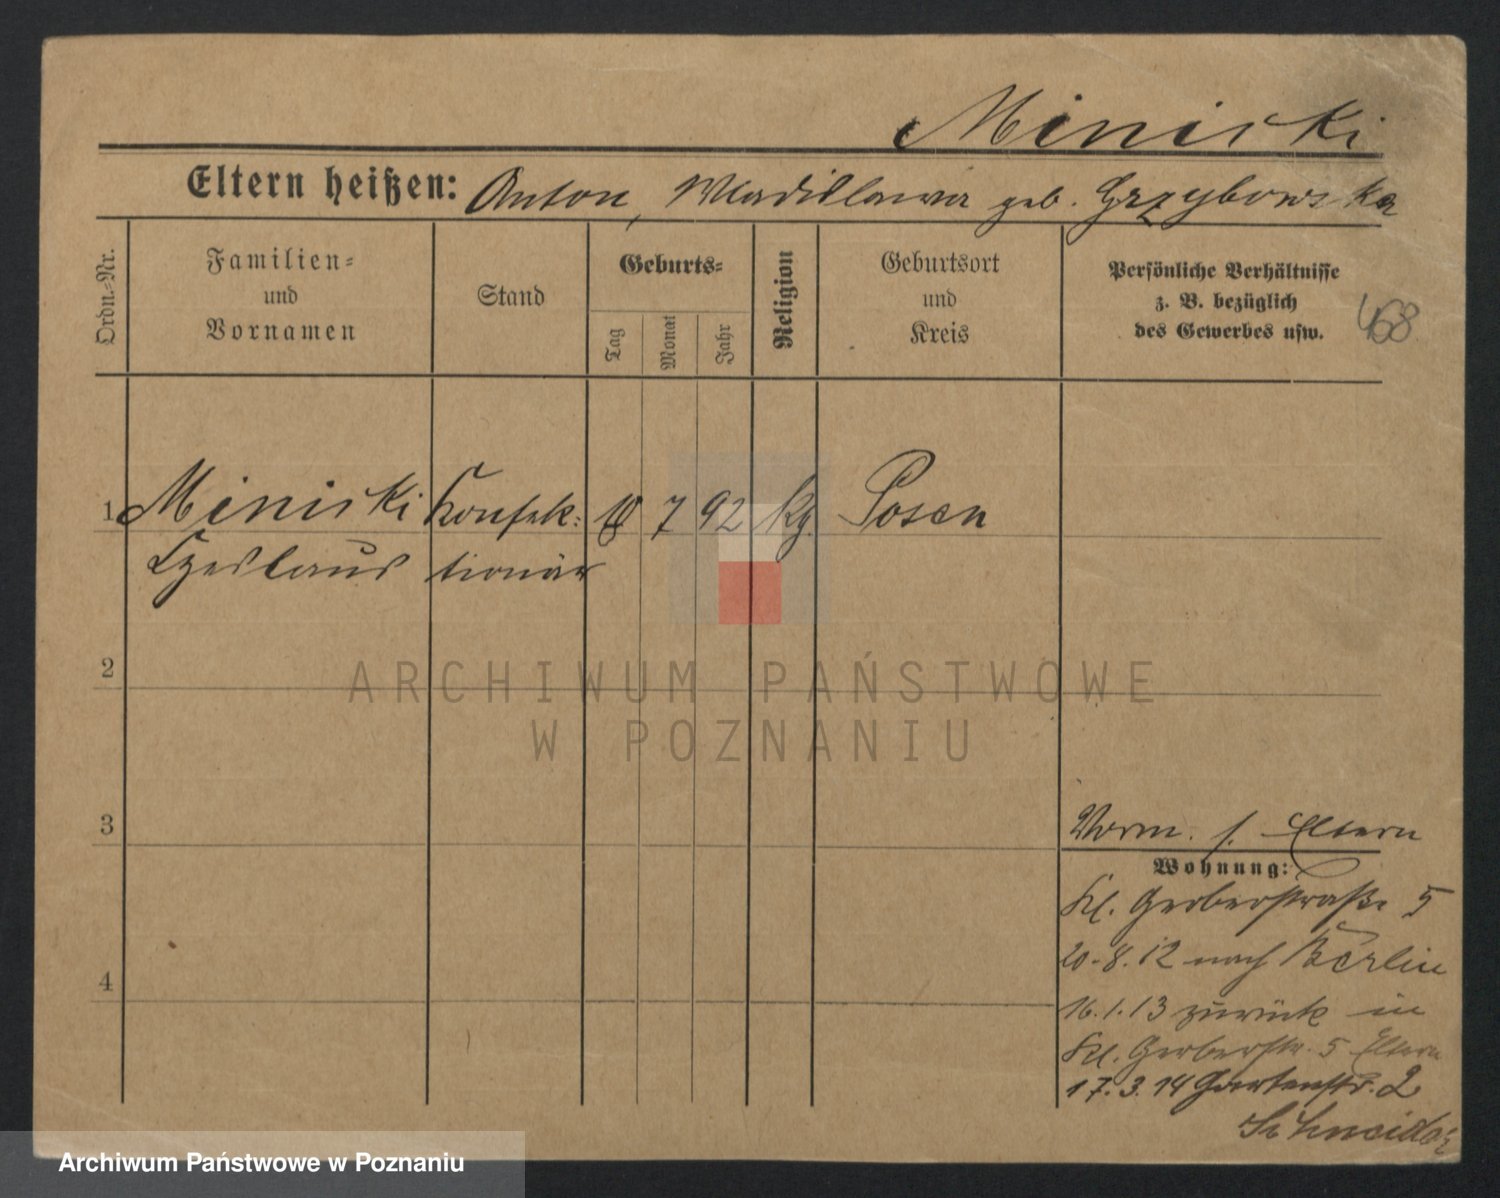 Miniski
Eltern heißen: Anton, Wladislawa geb. Grzybowska
Ordn.-Nr.
Familien-
und
Vornamen
Stand
Geburts-
Tag
Monat
Jahr
Religion
Geburtsort
und
Kreis
Persönliche Verhältnisse
z. B. bezüglich
des Gewerbes usw.
468
1 Miniski Konfek- 7 92 kg. Posen
Czeslaus tionär
2
ARCHIWUM PAŃSTWOWE
W POZNANIU
3
Vorm. s. Eltern
Wohnung:
Kl. Gerberstraße 5
20.8.12 nach Berlin
16.1.13 zurück in
Kl. Gerberstr. 5 Eltern
4
17.3.14 Gartenstr. 2
Archiwum Państwowe w Poznaniu